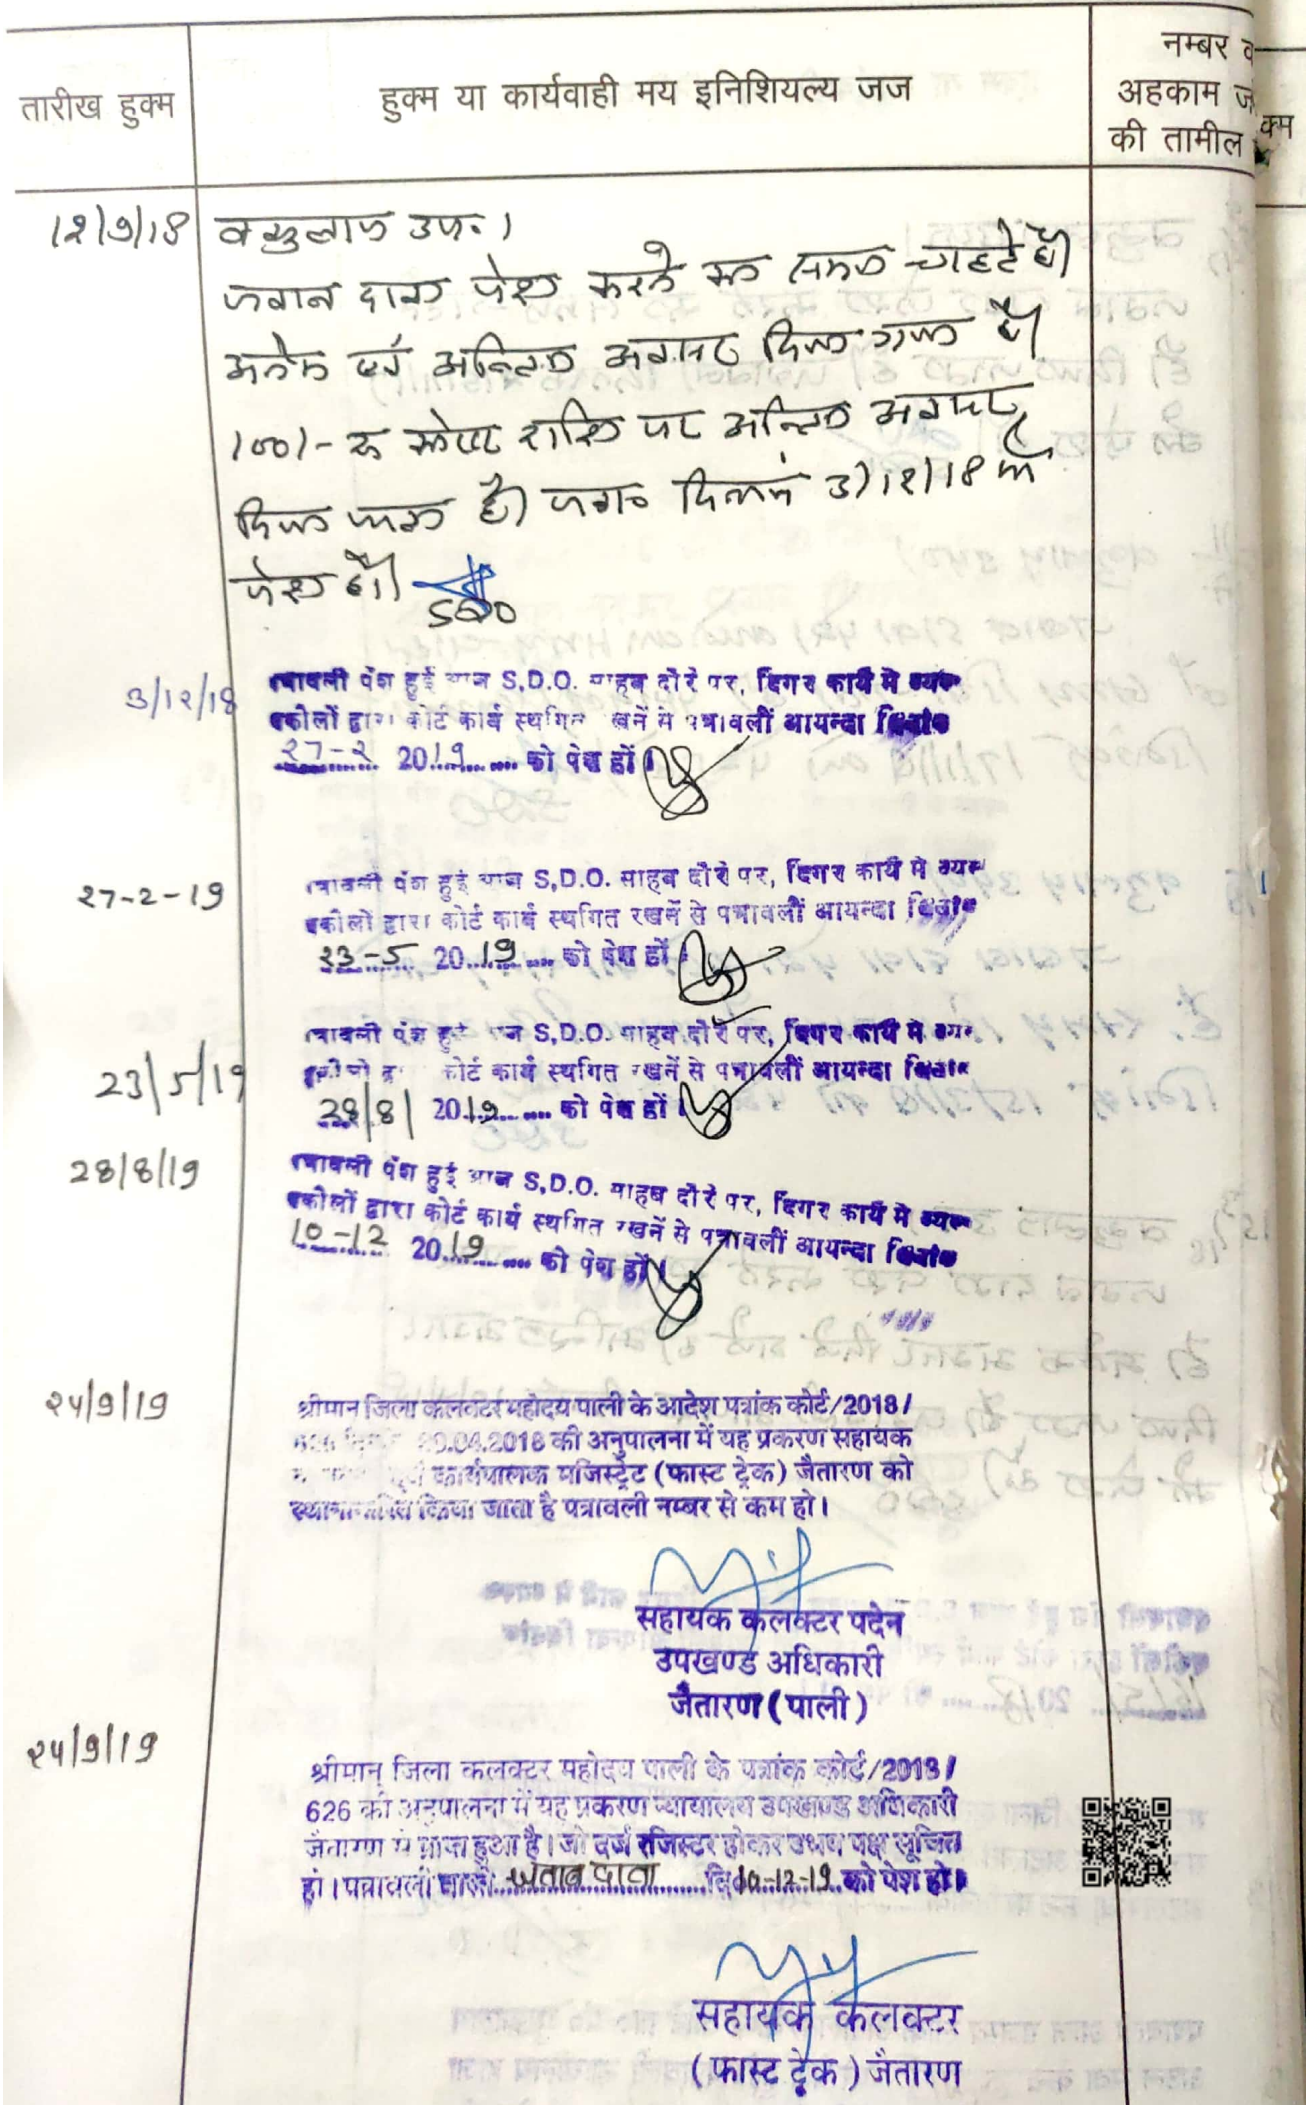 तारीख हुक्म
हुक्म या कार्यवाही मय इनिशियल्य जज
नम्बर व
अहकाम ज
की तामील
क्म
12/9/18
वकुलाय उप.।
जवाब दावा पेश करने का समय चाहते है।
अनेक एवं अन्तिम अवसर दिया गया है।
100/- रु कोस्ट राशि पर अन्तिम अवसर
दिया जाता है। जवाब दिनांक 3/12/18 को
पेश हो।
SDO
3/12/18
पेश हुई आज S.D.O. साहब दौरे पर, दिगर कार्य मे व्यस्त
वकीलों द्वारा कोर्ट कार्य स्थगित रखनें से पत्रावलीं आयन्दा दिनांक
27-2 2019 को पेश हों।
27-2-19
पेश हुई आज S.D.O. साहब दौरे पर, दिगर कार्य मे व्यस्त
वकीलों द्वारा कोर्ट कार्य स्थगित रखनें से पत्रावलीं आयन्दा दिनांक
23-5 2019 को पेश हों।
23/5/19
पेश हुई S.D.O. साहब दौरे पर, दिगर कार्य मे
कोर्ट कार्य स्थगित रखनें से पत्रावलीं आयन्दा दिनांक
28/8/ 2019 को पेश हों।
28/8/19
पेश हुई आज S.D.O. साहब दौरे पर, दिगर कार्य मे व्यस्त
वकीलों द्वारा कोर्ट कार्य स्थगित रखनें से पत्रावलीं आयन्दा दिनांक
10-12 2019 को पेश हों।
24/9/19
श्रीमान जिला कलक्टर महोदय पाली के आदेश पत्रांक कोर्ट/2018/
20.04.2018 की अनुपालना में यह प्रकरण सहायक
कार्यपालक मजिस्ट्रेट (फास्ट ट्रेक) जैतारण को
स्थानान्तरित किया जाता है पत्रावली नम्बर से कम हो।
सहायक कलक्टर पदेन
उपखण्ड अधिकारी
जैतारण (पाली)
24/9/19
श्रीमान् जिला कलक्टर महोदय पाली के पत्रांक कोर्ट/2018/
626 की अनुपालना में यह प्रकरण न्यायालय उपखण्ड अधिकारी
जैतारण से प्राप्त हुआ है। जो दर्ज रजिस्टर होकर उभय पक्ष सूचित
हो। पत्रावली वास्ते जवाब दावा दि 10-12-19 को पेश हो।
सहायक कलक्टर
(फास्ट ट्रेक) जैतारण